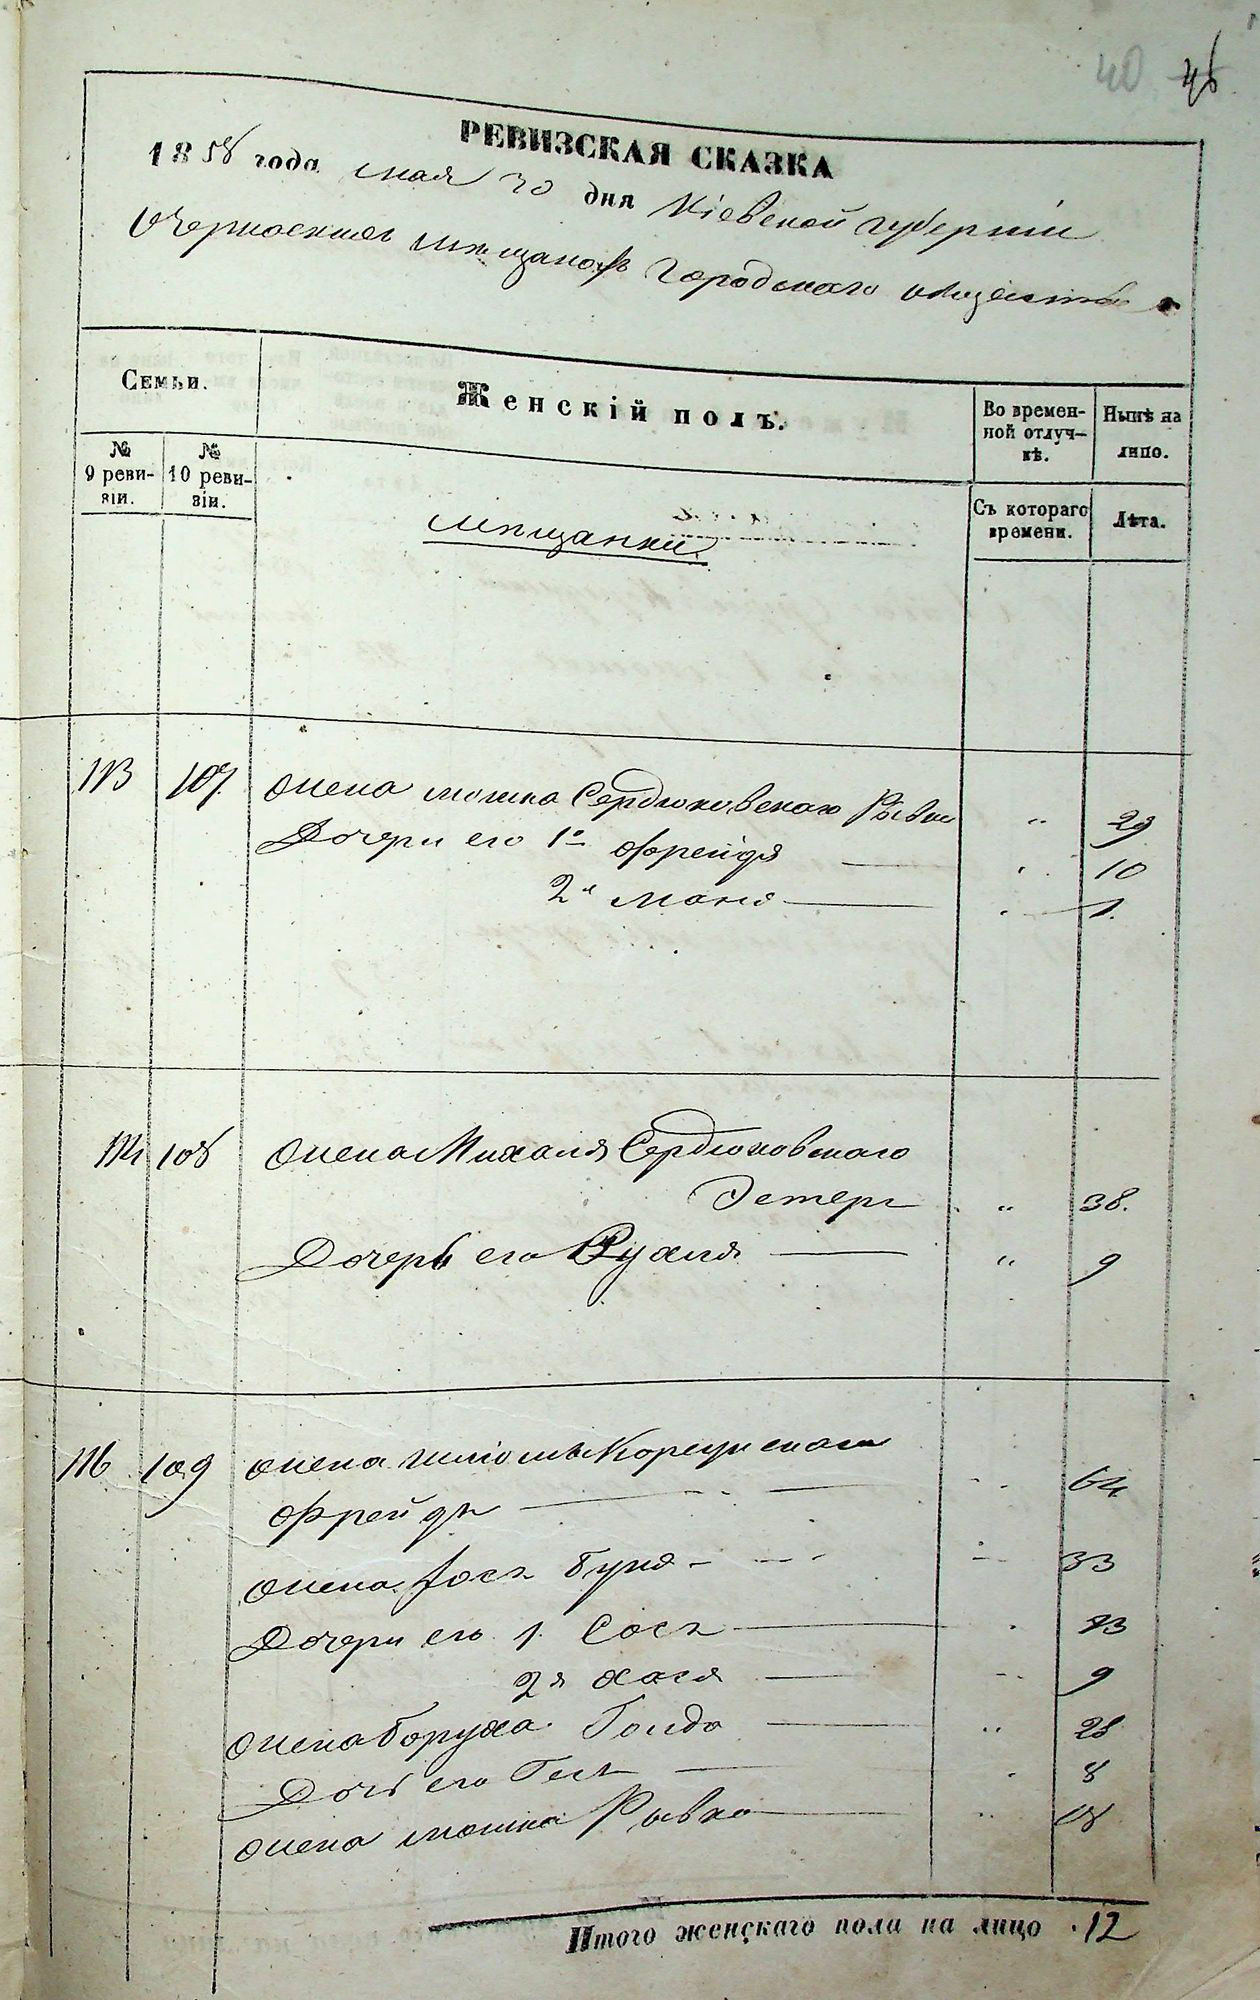 40 46
РЕВИЗСКАЯ СКАЗКА
1858 года мая 30 дня Кіевской губерніи
О Черкасскихъ мѣщанахъ городского общества
Семьи.
Женскій полъ.
Во времен-
ной отлуч-
кѣ.
Нынѣ на
лицо.
№
9 реви-
зіи.
№
10 реви-
зіи.
Съ котораго
времени.
Лѣта.
мѣщанки.
113 107 Жена Мошка Сердюковскаго Рывка " 29
Дочери его 1я Фрейда — " 10
2я Маня — " 1.
114 108 Жена Михаля Сердюковскаго
Эстеръ " 38.
Дочерь его Рухля — " 9
116 109 Жена Шліомы Корсунскаго
Фрейда — 64
Жена Іося Буня — 33
Дочери его 1. Сося — 13
2я Хася — 9
Жена Боруха Голда — " 28
Дочь его Геся — 8
Жена Мошка Рывка — " 18
Итого женскаго пола на лицо 12